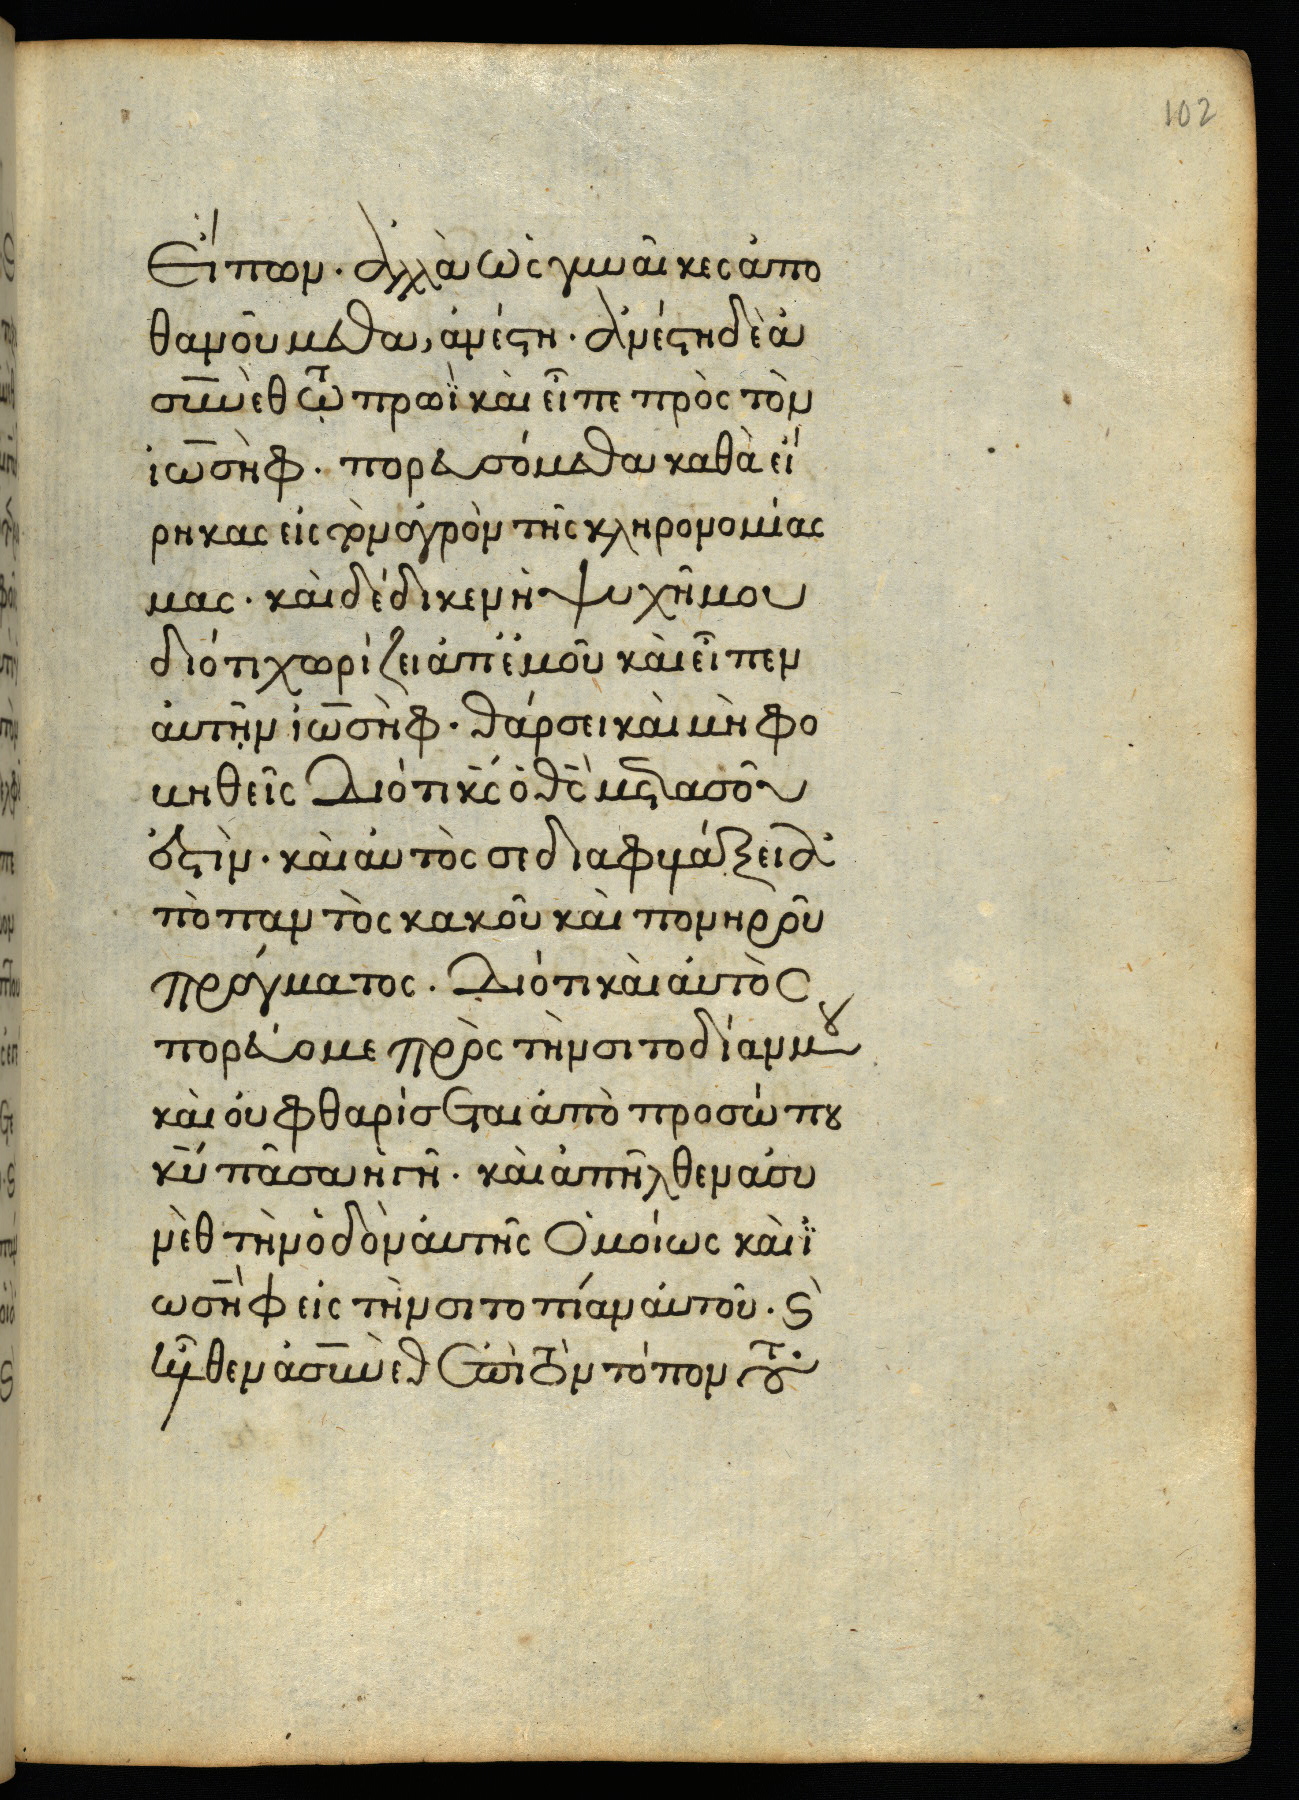 102
εἴπων · ἀλλὰ ὡς γυναῖκες ἀπο
θανοῦμεθα, ἀνέστη · ἀνέστη δὲ ἀ
συνὲθ τῷ πρωῒ καὶ εἶπε πρὸς τὸν
ἰωσὴφ · πορευσόμεθα καθὰ εἴ
ρηκας εἰς τὸν ἀγρὸν τῆς κληρονομίας
μας · καὶ δέδικεν ἡ ψυχῆ μου
διότι χωρίζει ἀπ' ἐμοῦ καὶ εἶπεν
αὐτῆν ἰωσὴφ · θάρσει καὶ μὴ φο
κηθεῖς Διότι κ̅ς ὁ θ̅ς μετασοῦ
ἐστὶν · καὶ αὐτὸς σε διαφυλάξει ἀ
πὸ παντὸς κακοῦ καὶ πονηροῦ
πράγματος · Διότι καὶ αὐτὸς
πορεύομε πρὸς τὴν σιτοδίαν μου
καὶ οὐ φθαρίσεται ἀπὸ προσώπου
κ̅υ πᾶσα ἡ γῆ · καὶ ἀπῆλθεν ἀσυ
νὲθ τὴν ὁδὸν αὐτῆς Ὁμοίως καὶ ἰ
ωσὴφ εἰς τὴν σιτοπίαν αὐτοῦ · ϛ̀
ἦλθεν ἀσυνὲθ ἐπὶ τὸν τόπον τοῦ